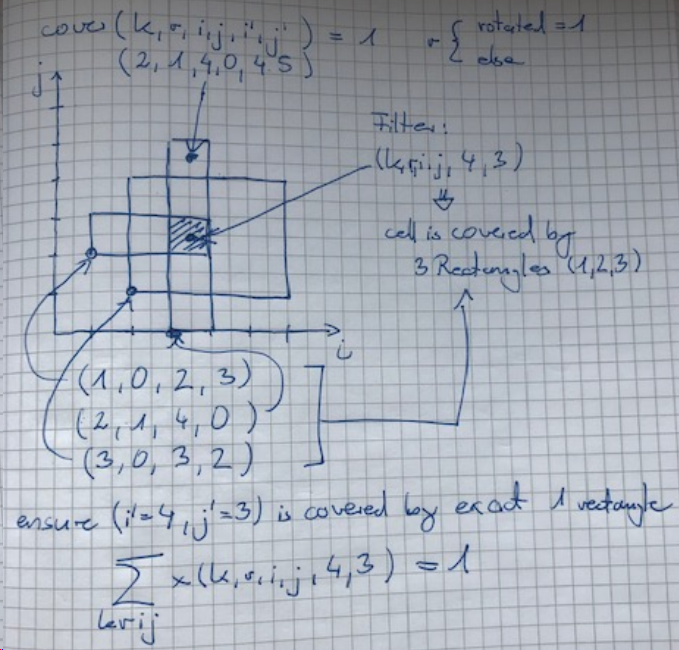 cover(k, r, i, j, i', j') = 1   r { rotated = 1
(2, 1, 4, 0, 4 5)   else
j
Filter:
(k, r, i, j, 4, 3)
⇓
cell is covered by
3 Rectangles (1,2,3)
i
(1, 0, 2, 3)
(2, 1, 4, 0)
(3, 0, 3, 2)
ensure (i'=4, j'=3) is covered by exact 1 rectangle
∑ x(k, r, i, j, 4, 3) = 1
krij